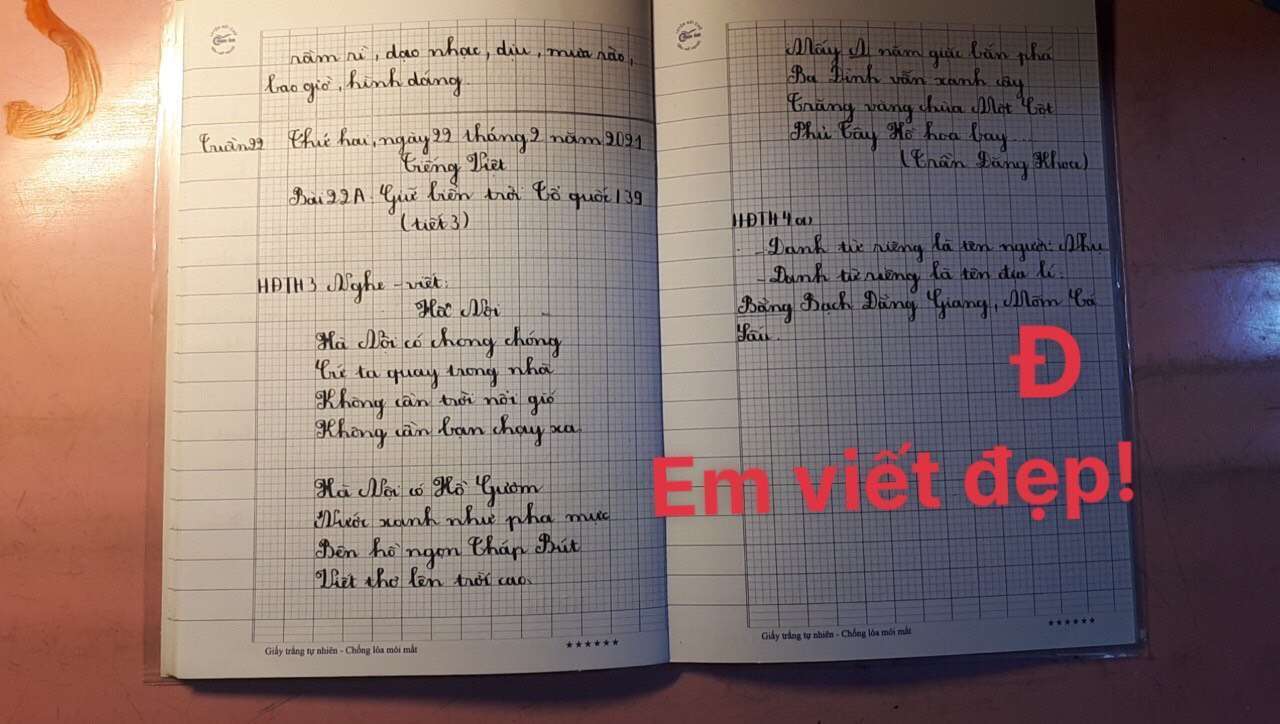 rầm rì, dạo nhạc, dịu, mưa rào,
bao giờ, hình dáng.
Tuần 22 Thứ hai, ngày 22 tháng 2 năm 2021
Tiếng Việt
Bài 22A: Giữ biển trời Tổ quốc 139
(tiết 3)
HĐTH 3 Nghe - viết:
Hà Nội
Hà Nội có chong chóng
Cứ tự quay trong nhà
Không cần trời nổi gió
Không cần bạn chạy xa
Hà Nội có Hồ Gươm
Nước xanh như pha mực
Bên hồ ngọn Tháp Bút
Viết thơ lên trời cao.
Giấy trắng tự nhiên - Chống lóa mỏi mắt
Mấy năm giặc bắn phá
Ba Đình vẫn xanh cây
Trăng vàng chùa Một Cột
Phủ Tây Hồ hoa bay...
(Trần Đăng Khoa)
HĐTH 4 a)
- Danh từ riêng là tên người: Nhụ
- Danh từ riêng là tên địa lí:
Bằng Bạch Đằng Giang, Mõm Cá
Sấu.
Đ
Em viết đẹp!
Giấy trắng tự nhiên - Chống lóa mỏi mắt